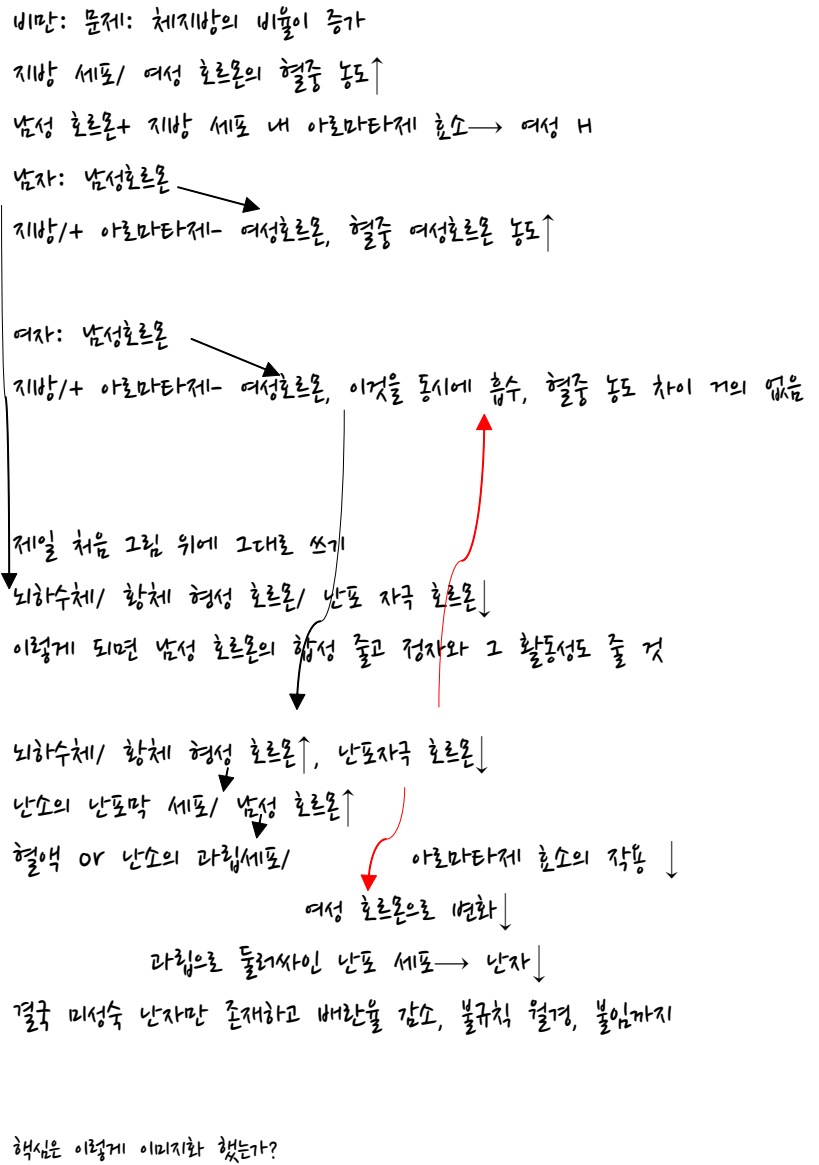 비만: 문제: 체지방의 비율이 증가
지방 세포/ 여성 호르몬의 혈중 농도↑
남성 호르몬+ 지방 세포 내 아로마타제 효소→ 여성 H
남자: 남성호르몬
지방/+ 아로마타제- 여성호르몬, 혈중 여성호르몬 농도↑
여자: 남성호르몬
지방/+ 아로마타제- 여성호르몬, 이것을 동시에 흡수, 혈중 농도 차이 거의 없음
제일 처음 그림 위에 그대로 쓰기
뇌하수체/ 황체 형성 호르몬/ 난포 자극 호르몬↓
이렇게 되면 남성 호르몬의 합성 줄고 정자와 그 활동성도 줄 것
뇌하수체/ 황체 형성 호르몬↑, 난포자극 호르몬↓
난소의 난포막 세포/ 남성 호르몬↑
혈액 or 난소의 과립세포/ 아로마타제 효소의 작용 ↓
여성 호르몬으로 변화↓
과립으로 둘러싸인 난포 세포→ 난자↓
결국 미성숙 난자만 존재하고 배란율 감소, 불규칙 월경, 불임까지
핵심은 이렇게 이미지화 했는가?